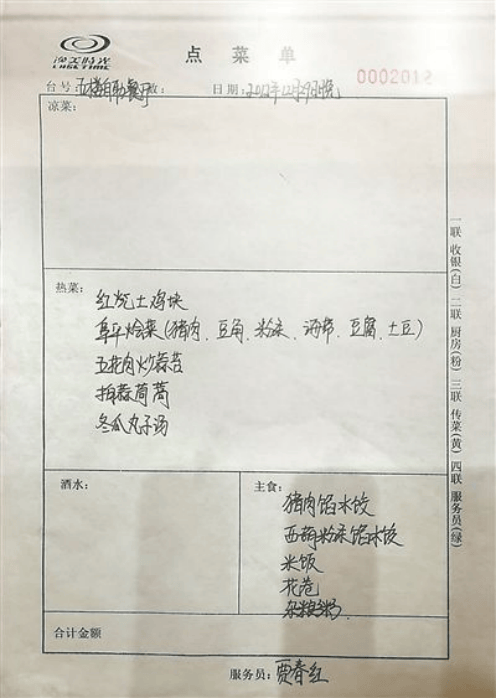 渔美时光
LUSETIME
点菜单
0002012
台号：五楼自助餐厅 数： 日期：2012年12月29日晚
凉菜：
热菜：
红烧土鸡块
阜平烩菜（猪肉、豆角、粉条、海带、豆腐、土豆）
五花肉炒蒜苔
拍蒜茼蒿
冬瓜丸子汤
酒水：
主食：
猪肉馅水饺
西葫粉条馅水饺
米饭
花卷
杂粮粥
合计金额
服务员：贾春红
一联 收银（白） 二联 厨房（粉） 三联 传菜（黄） 四联 服务员（绿）